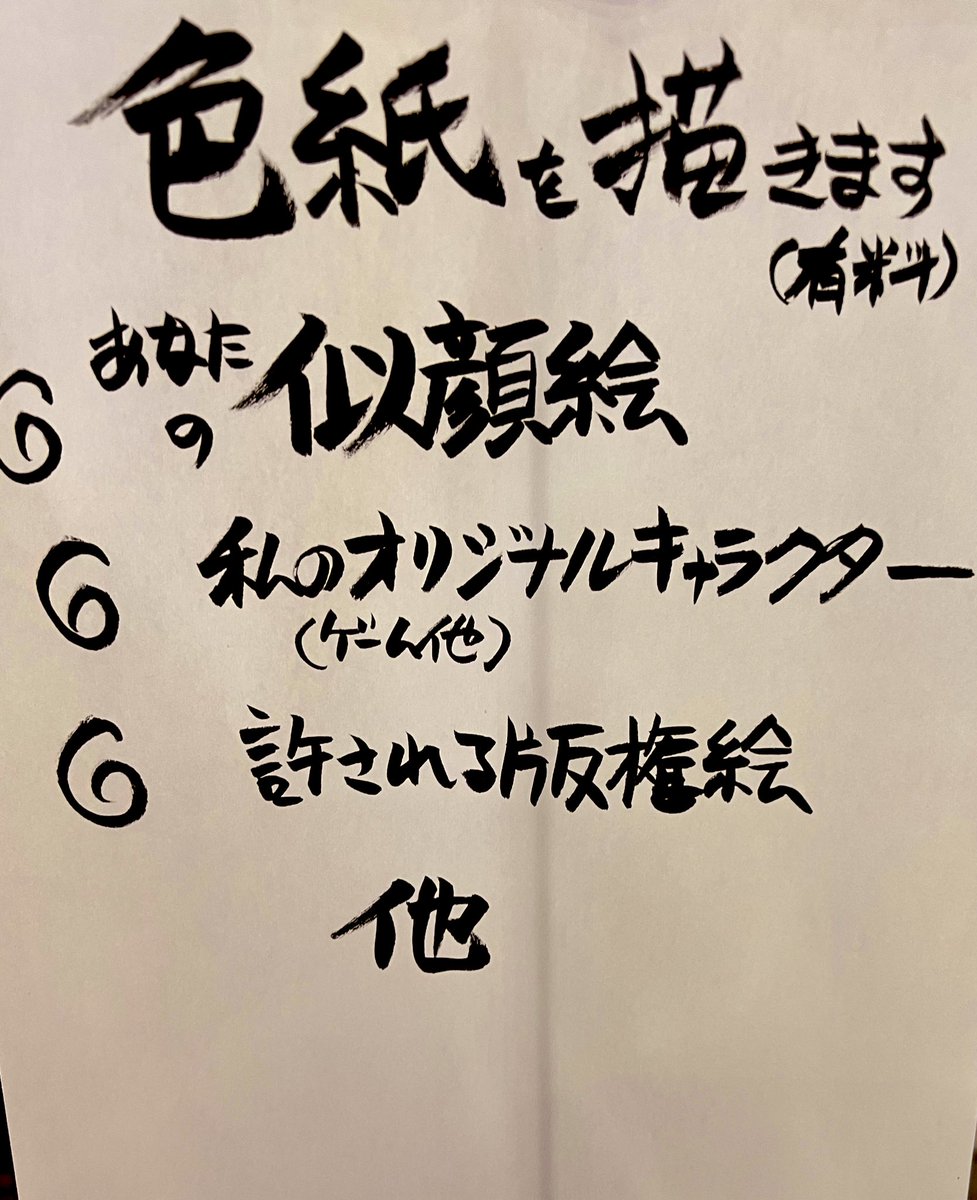 色紙を描きます
(有料)
あなたの似顔絵
私のオリジナルキャラクター
(ゲーム他)
許される版権絵
他